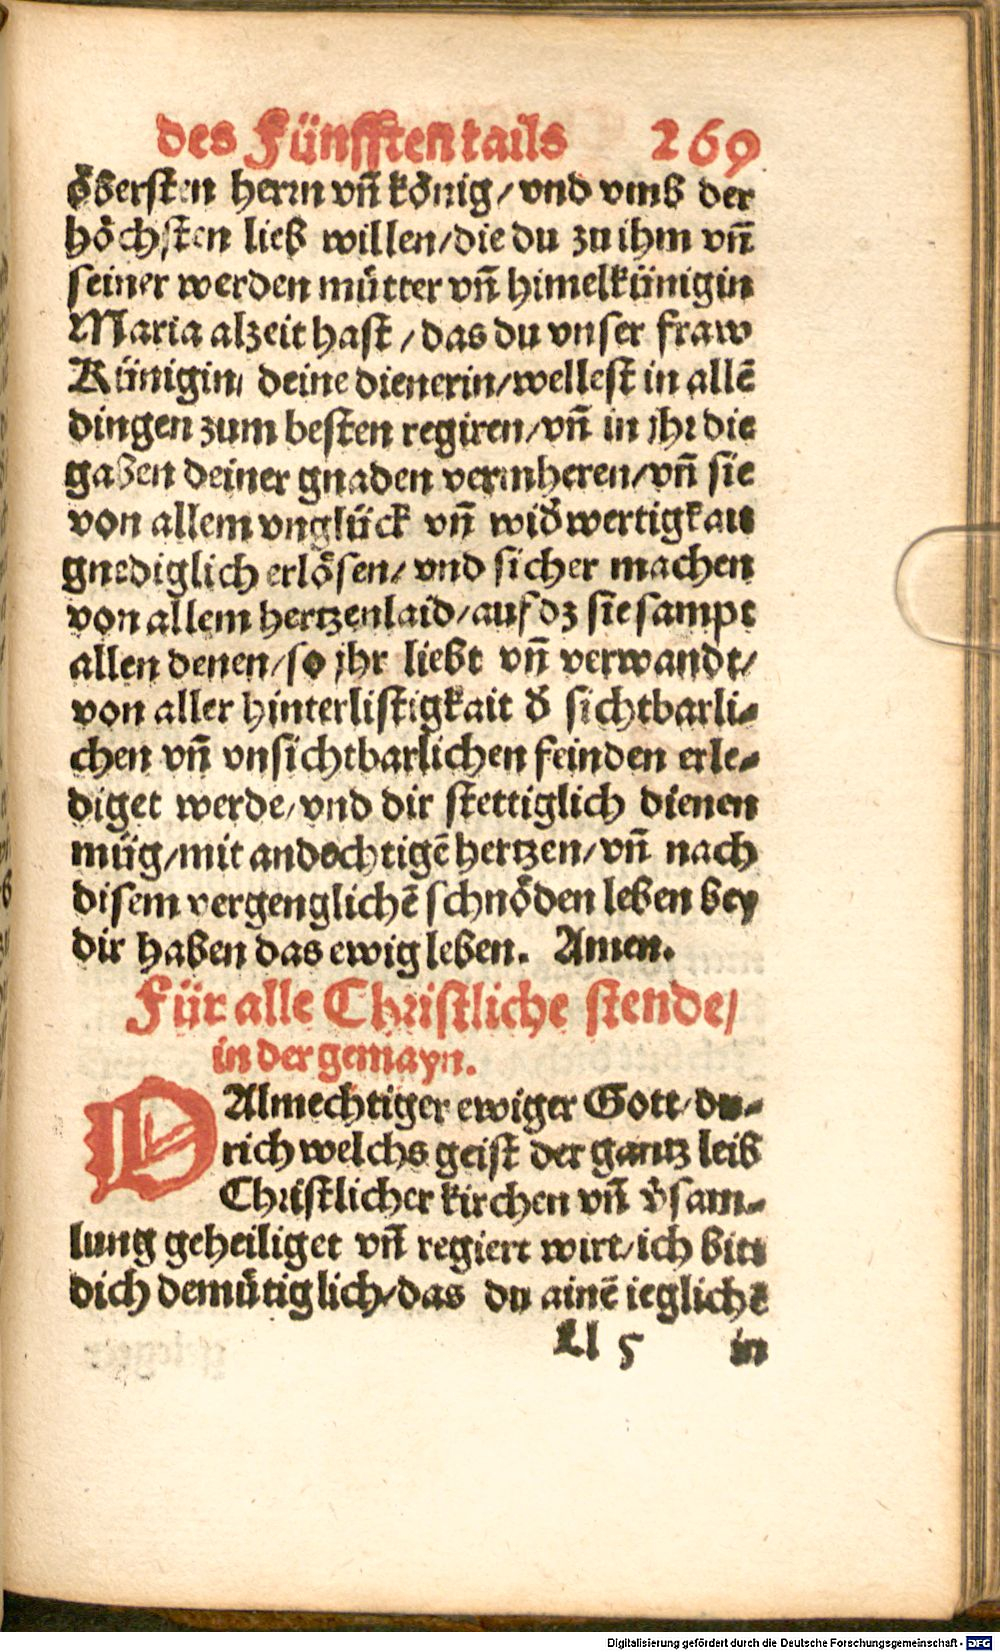 des Fünfften tails 269
öbersten herrn vñ könig/ vnd vmb der
höchsten lieb willen/die du zu ihm vñ
seiner werden mütter vñ himelkünigin
Maria alzeit hast/das du vnser fraw
Künigin/ deine dienerin/wellest in allē
dingen zum besten regiren/vñ in jhr die
gaben deiner gnaden vermheren/vñ sie
von allem vnglück vñ widˀwertigkait
gnediglich erlösen/ vnd sicher machen
von allem hertzenlaid/auf dz sie sampt
allen denen/so jhr liebt vñ verwandt/
von aller hinterlistigkait dˀ sichtbarli-
chen vñ vnsichtbarlichen feinden erle-
diget werde/vnd dir stettiglich dienen
müg/mit andechtigē hertzen/vñ nach
disem vergenglichē schnöden leben bey
dir haben das ewig leben. Amen.
Für alle Christliche stende/
in der gemayn.
O Almechtiger ewiger Gott/du-
rich welchs geist der gantz leib
Christlicher kirchen vñ vˀsam-
lung geheiliget vñ regiert wirt/ich bitt
dich demütiglich/das du ainē ieglichē
Ll 5 in
Digitalisierung gefördert durch die Deutsche Forschungsgemeinschaft - DFG